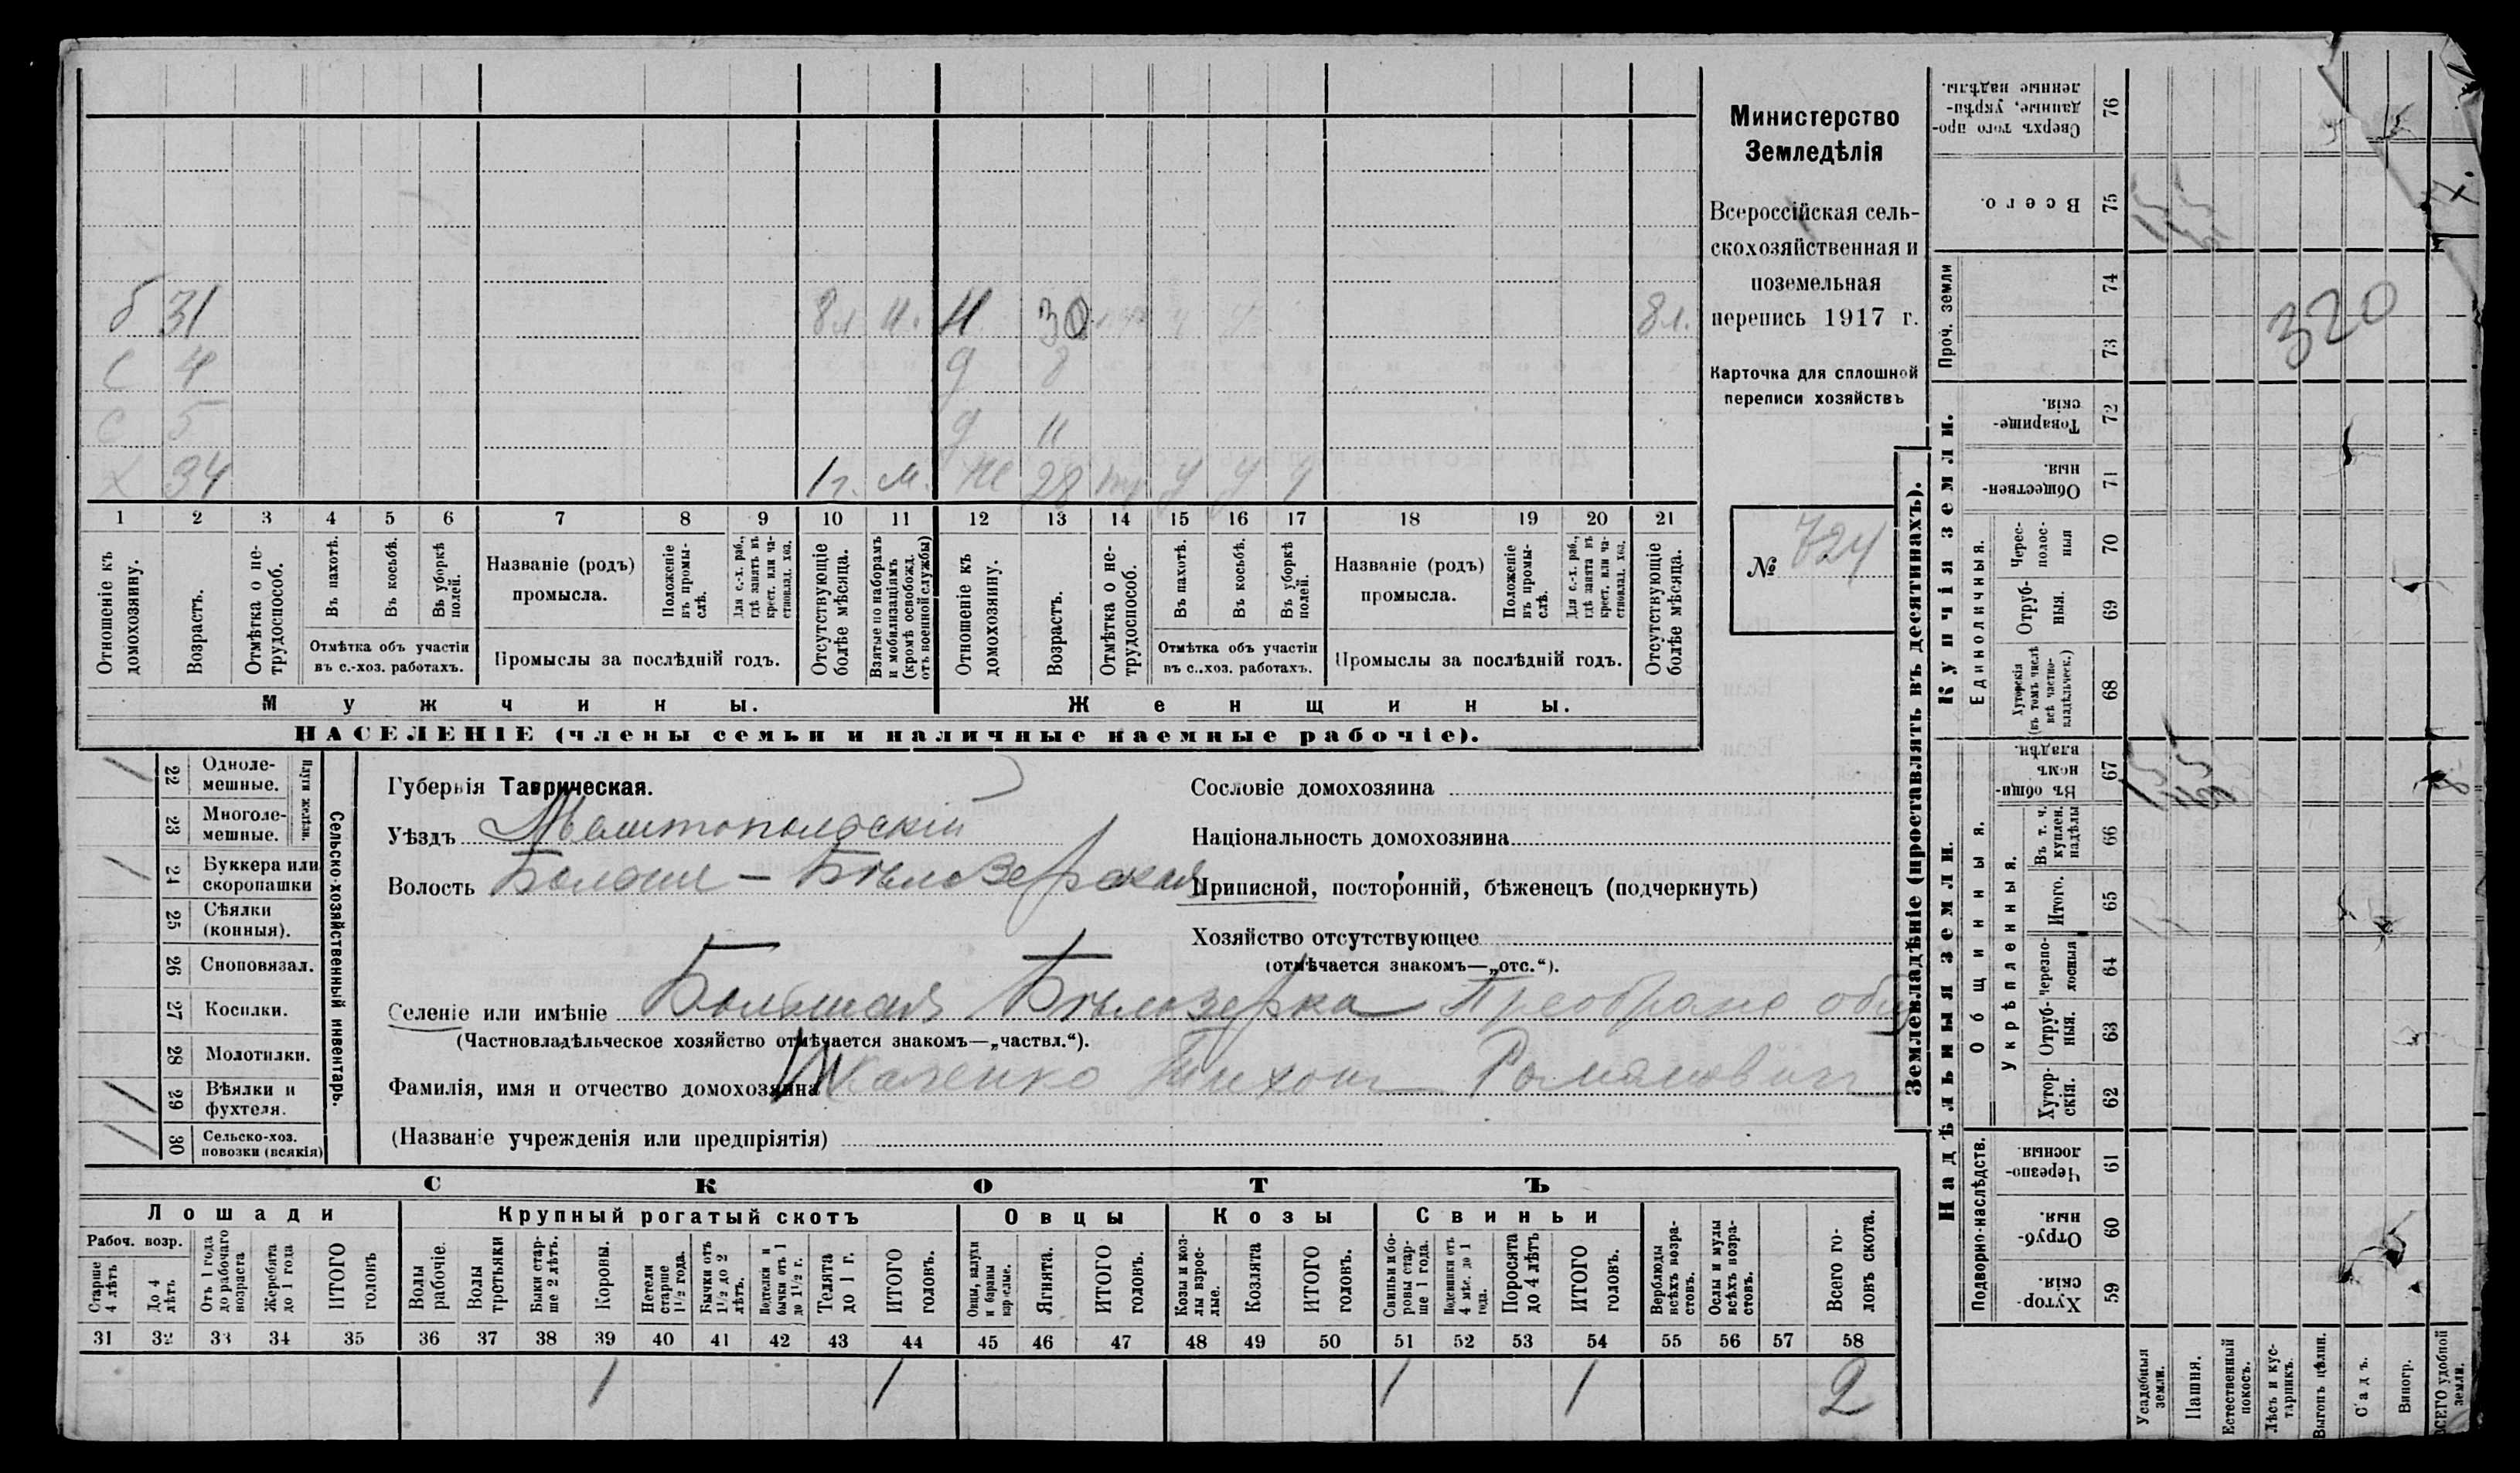 б 31 8 л. Н 30 8 л.
с 4 д 8
с 5 д 11
х 34 1 г. м. же 28 у у у
1 2 3 4 5 6 7 8 9 10 11 12 13 14 15 16 17 18 19 20 21
Отношеніе къ домохозяину.
Возрастъ.
Отмѣтка о нетрудоспособ.
Въ пахотѣ.
Въ косьбѣ.
Въ уборкѣ полей.
Отмѣтка объ участіи
въ с.-хоз. работахъ.
Названіе (родъ)
промысла.
Положеніе въ промыслѣ.
Для с.-х. раб., гдѣ занятъ въ крест. или частновлад. хоз.
Промыслы за послѣдній годъ.
Отсутствующіе болѣе мѣсяца.
Взятые по наборамъ и мобилизаціямъ (кромѣ освобожд. отъ военной службы)
Отношеніе къ домохозяину.
Возрастъ.
Отмѣтка о нетрудоспособ.
Въ пахотѣ.
Въ косьбѣ.
Въ уборкѣ полей.
Отмѣтка объ участіи
въ с.-хоз. работахъ.
Названіе (родъ)
промысла.
Положеніе въ промыслѣ.
Для с.-х. раб., гдѣ занята въ крест. или частновлад. хоз.
Промыслы за послѣдній годъ.
Отсутствующіе болѣе мѣсяца.
Мужчины. Женщины.
НАСЕЛЕНІЕ (члены семьи и наличные наемные рабочіе).
Министерство
Земледѣлія
Всероссійская сель-
скохозяйственная и
поземельная
перепись 1917 г.
Карточка для сплошной
переписи хозяйствъ
№ 724
Сельско-хозяйственный инвентарь.
Плуги желѣзн.
/ 22 Одноле-
мешные.
23 Многоле-
мешные.
/ 24 Буккера или
скоропашки
25 Сѣялки
(конныя).
26 Сноповязал.
27 Косилки.
28 Молотилки.
/ 29 Вѣялки и
фухтеля.
/ 30 Сельско-хоз.
повозки (всякія)
Губернія Таврическая.
Уѣздъ Мелитопольскій
Волость Больше-Бѣлозерская
Селеніе или имѣніе Большая Бѣлозерка Преображ общ
(Частновладѣльческое хозяйство отмѣчается знакомъ—„частвл.“).
Фамилія, имя и отчество домохозяина Ткаченко Тихонъ Романовичъ
(Названіе учрежденія или предпріятія)
Сословіе домохозяина
Національность домохозяина
Приписной, посторонній, бѣженецъ (подчеркнуть)
Хозяйство отсутствующее
(отмѣчается знакомъ—„отс.“).
СКОТЪ
Лошади Крупный рогатый скотъ Овцы Козы Свиньи
Рабоч. возр.
Старше 4 лѣтъ
До 4 лѣтъ
Отъ 1 года до рабочаго возраста
Жеребята до 1 года
ИТОГО головъ
Волы рабочіе.
Волы третьяки
Быки старше 2 лѣтъ.
Коровы.
Нетели старше 1½ года.
Бычки отъ 1½ до 2 лѣтъ.
Подтелки и бычки отъ 1 до 1½ г.
Телята до 1 г.
ИТОГО головъ.
Овцы, валухи и бараны взрослые.
Ягнята.
ИТОГО головъ.
Козы и козлы взрослые.
Козлята
ИТОГО головъ.
Свиньи и боровы старше 1 года.
Подсвинки отъ 4 мѣс. до 1 года.
Поросята до 4 лѣтъ
ИТОГО головъ.
Верблюды всѣхъ возрастовъ.
Ослы и мулы всѣхъ возрастовъ.
Всего головъ скота.
31 32 33 34 35 36 37 38 39 40 41 42 43 44 45 46 47 48 49 50 51 52 53 54 55 56 57 58
1 1 1 1 2
Землевладѣніе (проставлять въ десятинахъ).
Купчія земли.
Надѣльныя земли.
Сверхъ того проданные, укрѣпленные надѣлы. 76
Всего. 75
Проч. земли 74 73
320
Товарищескія. 72
Общественныя. 71
Единоличныя.
Чересполосныя 70
Отрубныя. 69
Хуторскія (въ томъ числѣ всѣ частновладѣльческ.) 68
Общинныя.
Въ общинномъ владѣн. 67
Укрѣпленныя.
Въ т. ч. куплен. надѣлы 66
Итого. 65
Черезполосныя 64
Отрубныя. 63
Хуторскія. 62
Подворно-наслѣдств.
Черезполосныя. 61
Отрубныя. 60
Хуторскія. 59
Усадебныя земли.
Пашня.
Естественный покосъ.
Лѣсъ и кустарникъ.
Выгонъ цѣлин.
Садъ.
Виногр.
ВСЕГО удобной земли.